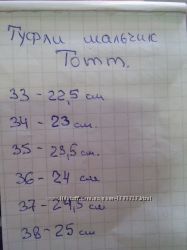 Туфли мальчик
Томм.
33 - 22,5 см
34 - 23 см.
35 - 23,5 см.
36 - 24 см
37 - 24,5 см
38 - 25 см